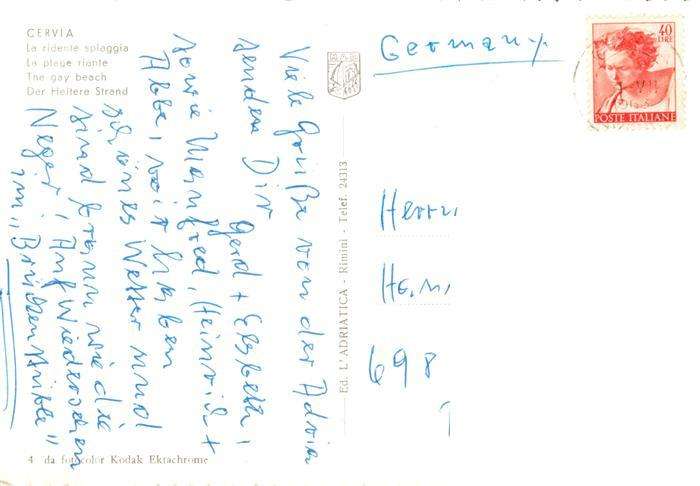 CERVIA
La ridente spiaggia
La plage riante
The gay beach
Der Heitere Strand
Viele Grüße von der Adria
senden Dir
Gerd + Elsbeth,
sowie Manfred, Heinrich +
Abba, wir haben
schönes Wetter und
sind braun wie die
Neger! Auf Wiedersehen
im „Brückenstüble"
4 da fotocolor Kodak Ektachrome
Ed. L'ADRIATICA - Rimini - Telef. 24313
Germany
40
LIRE
POSTE ITALIANE
Herrn
698